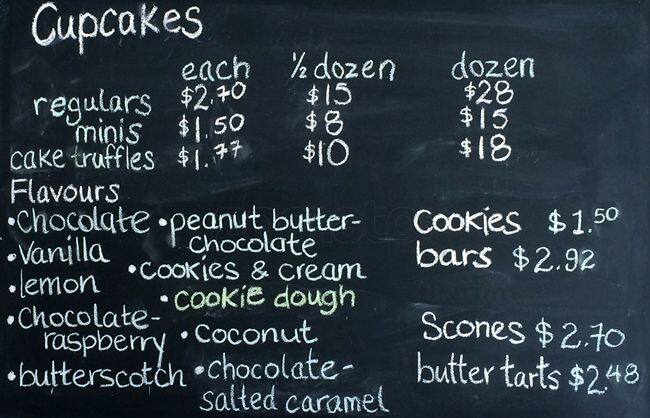 Cupcakes
each ½ dozen dozen
regulars $2.70 $15 $28
minis $1.50 $8 $15
cake truffles $1.77 $10 $18
Flavours
•Chocolate
•Vanilla
•lemon
•Chocolate-
raspberry
•butterscotch
•peanut butter-
chocolate
•cookies & cream
•cookie dough
•Coconut
•chocolate-
salted caramel
cookies $1.50
bars $2.92
Scones $2.70
butter tarts $2.48